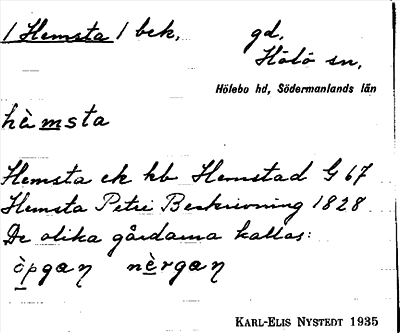 / Hemsta / bek, gd,
Hölö sn,
Hölebo hd, Södermanlands län
hèmsta
Hemsta ek kb Hemstad G 67
Hemsta Petri Beskrivning 1828
De olika gårdarna kallas:
òpgaη nèrgaη
KARL-ELIS NYSTEDT 1935